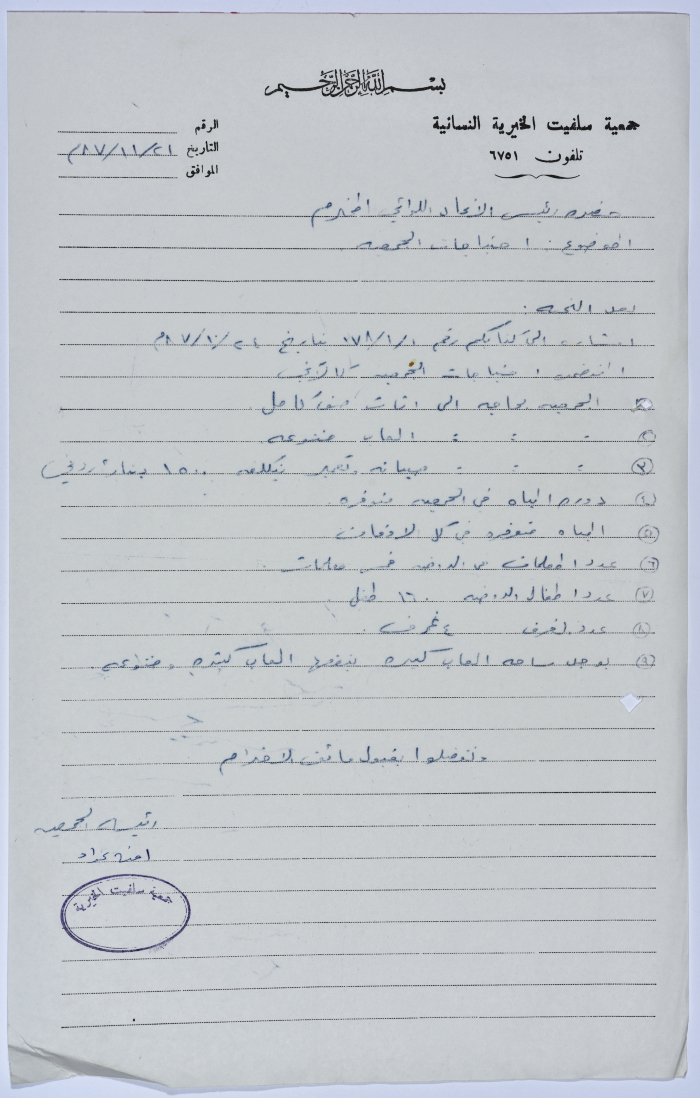 بسم الله الرحمن الرحيم
جمعية سلفيت الخيرية النسائية
تلفون ٦٧٥١
الرقم
التاريخ ٨٧/١١/٢١م
الموافق
حضرة رئيس الاتحاد اللوائي المحترم
الموضوع : احتياجات الجمعيه
بعد التحيه :
اشاره الى كتابكم رقم بتاريخ ٨٧/١٠/٢٤م
احتياجات الجمعيه كالاتي
الجمعيه بحاجه الى اثاث كامل
٢ " : : العاب متنوعه
٣ " : " صيانه وتعمير بتكلفه ١٥٠٠ دينار اردني
٤ دورة المياه في الجمعيه متوفره
٥ المياه متوفره في كل الاوقات
٦ عدد المعلمات في الروضه خمس معلمات
٧ عدد اطفال الروضه ١٦٠ طفل
٨ عدد الغرف ٤ غرف
٩ يوجد ساحه العاب كبيره ينقصها العاب كثيره ومتنوعه
وتفضلوا بقبول فائق الاحترام
رئيسة الجمعيه
جمعية سلفيت الخيرية